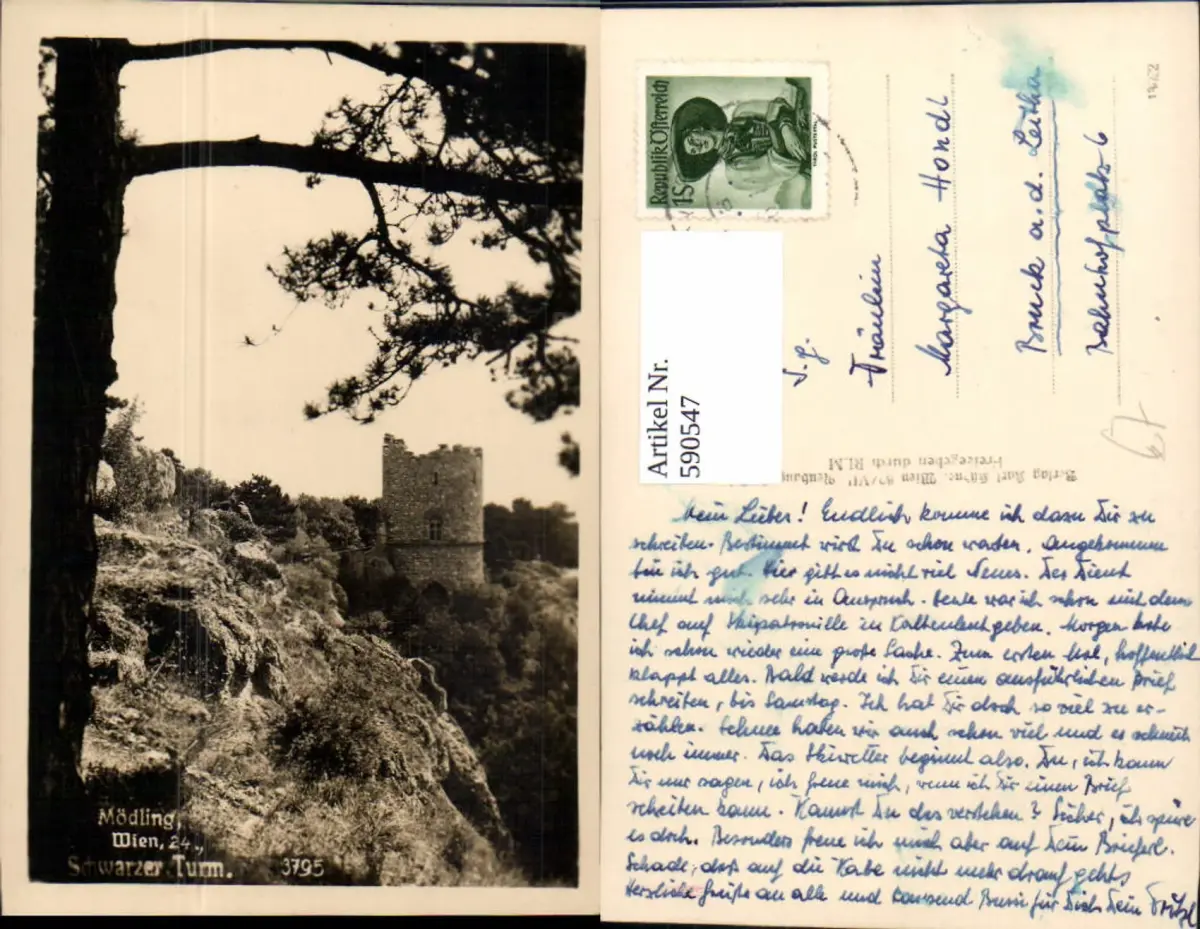 Mödling,
Wien, 24.,
Schwarzer Turm. 3795
Republik Österreich
1S
Artikel Nr.
590547
Fräulein
Margareta Hondl
Bruck a.d. Leitha
Bahnhofplatz 6
67
Freigegeben durch RLM
Mein Lieber! Endlich komme ich dazu Dir zu
schreiben. Bestimmt wirst Du schon warten. Angekommen
bin ich gut. Hier gibt es nicht viel Neues. Der Dienst
nimmt mich sehr in Anspruch. Heute war ich schon mit dem
Chef auf Skipatrouille in Kaltenleutgeben. Morgen habe
ich schon wieder eine große Sache. Zum ersten Mal, hoffentlich
klappt alles. Bald werde ich Dir einen ausführlichen Brief
schreiben, bis Samstag. Ich hab Dir doch so viel zu er-
zählen. Schnee haben wir auch schon viel und es schneit
noch immer. Das Skiwetter beginnt also. Du, ich kann
Dir nur sagen, ich freue mich, wenn ich Dir einen Brief
schreiben kann. Kannst Du das verstehen? Sicher, ich spüre
es doch. Besonders freue ich mich aber auf Dein Brieferl.
Schade, daß auf die Karte nicht mehr drauf geht.
Herzliche Grüße an alle und tausend Bussi für Dich Dein Fritzl